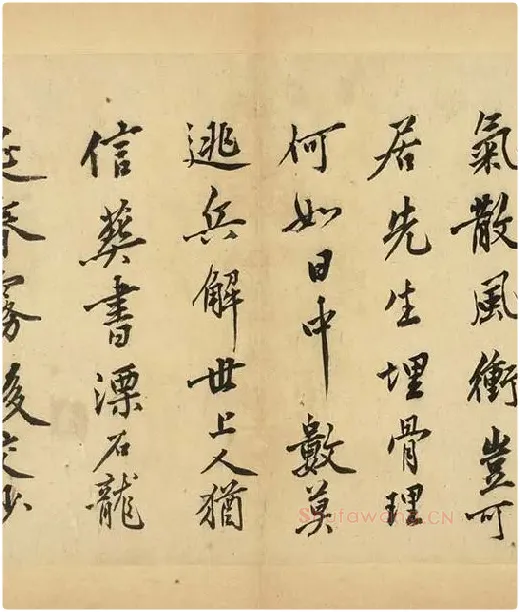 氣散風衝豈可
居先生埋骨理
何如日中數莫
逃兵解世上人猶
信葬書漂石龍
春霧後交